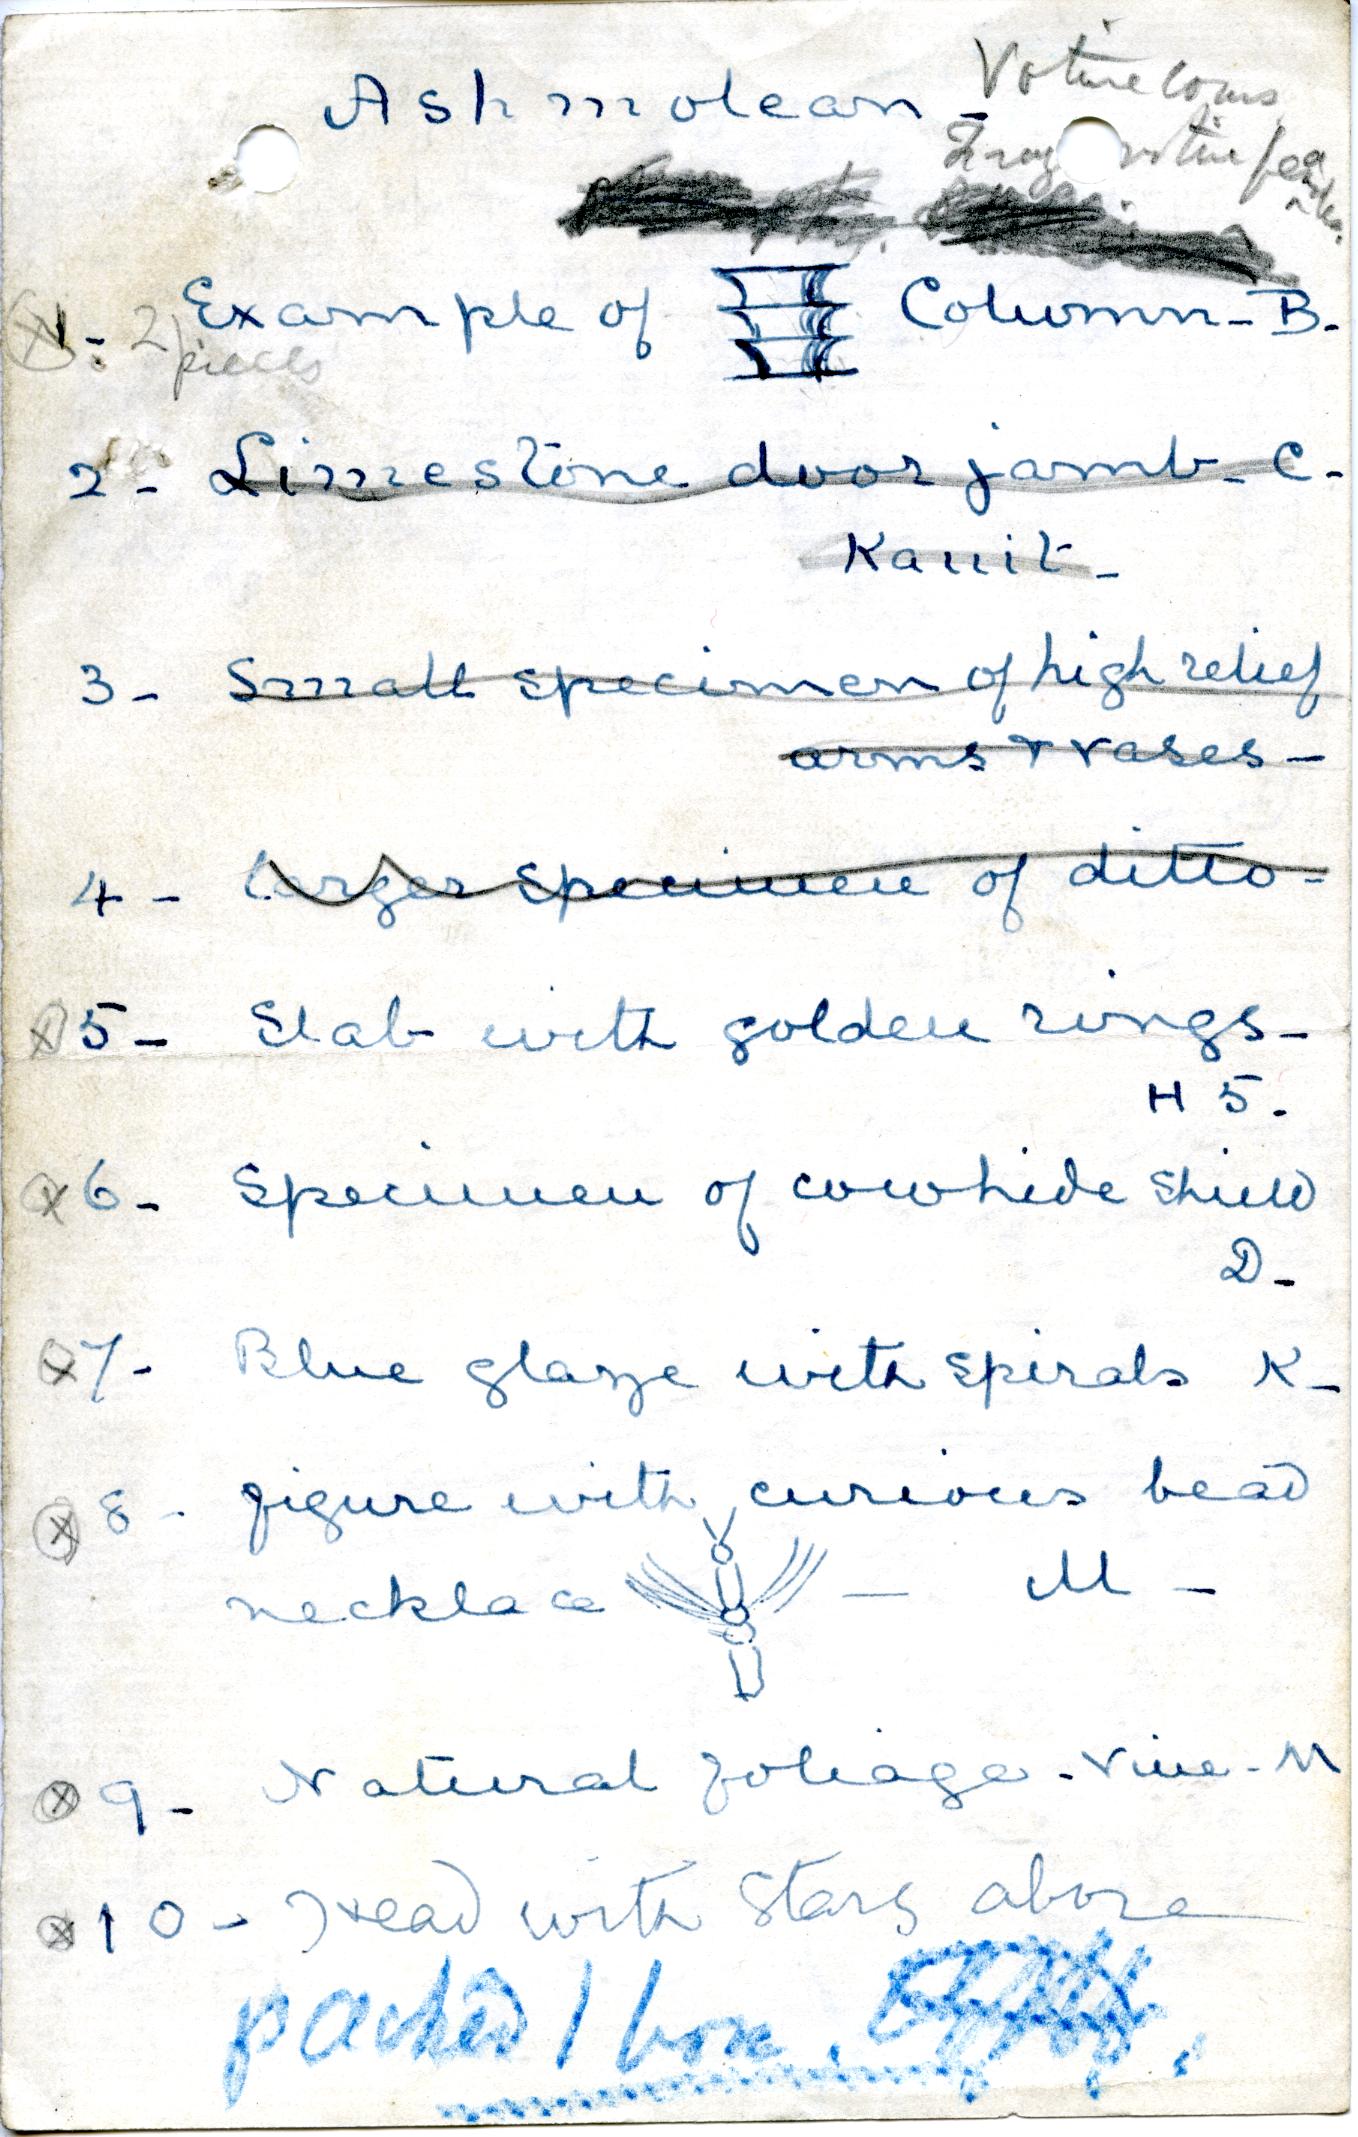 Ashmolean -
Votive cows
votive
1. - Example of Column - B.
2 pieces
2 - Limestone door jamb - C -
Kauit -
3 - Small specimen of high relief
arms + vases -
4 - larger specimen of ditto -
5 - Slab with golden rings -
H 5.
6 - Specimen of cowhide shield
D -
7 - Blue glaze with spirals K -
8 - figure with curious bead
necklace - M -
9 - Natural foliage - Vine - M
10 - Head with stars above
packed 1 box.